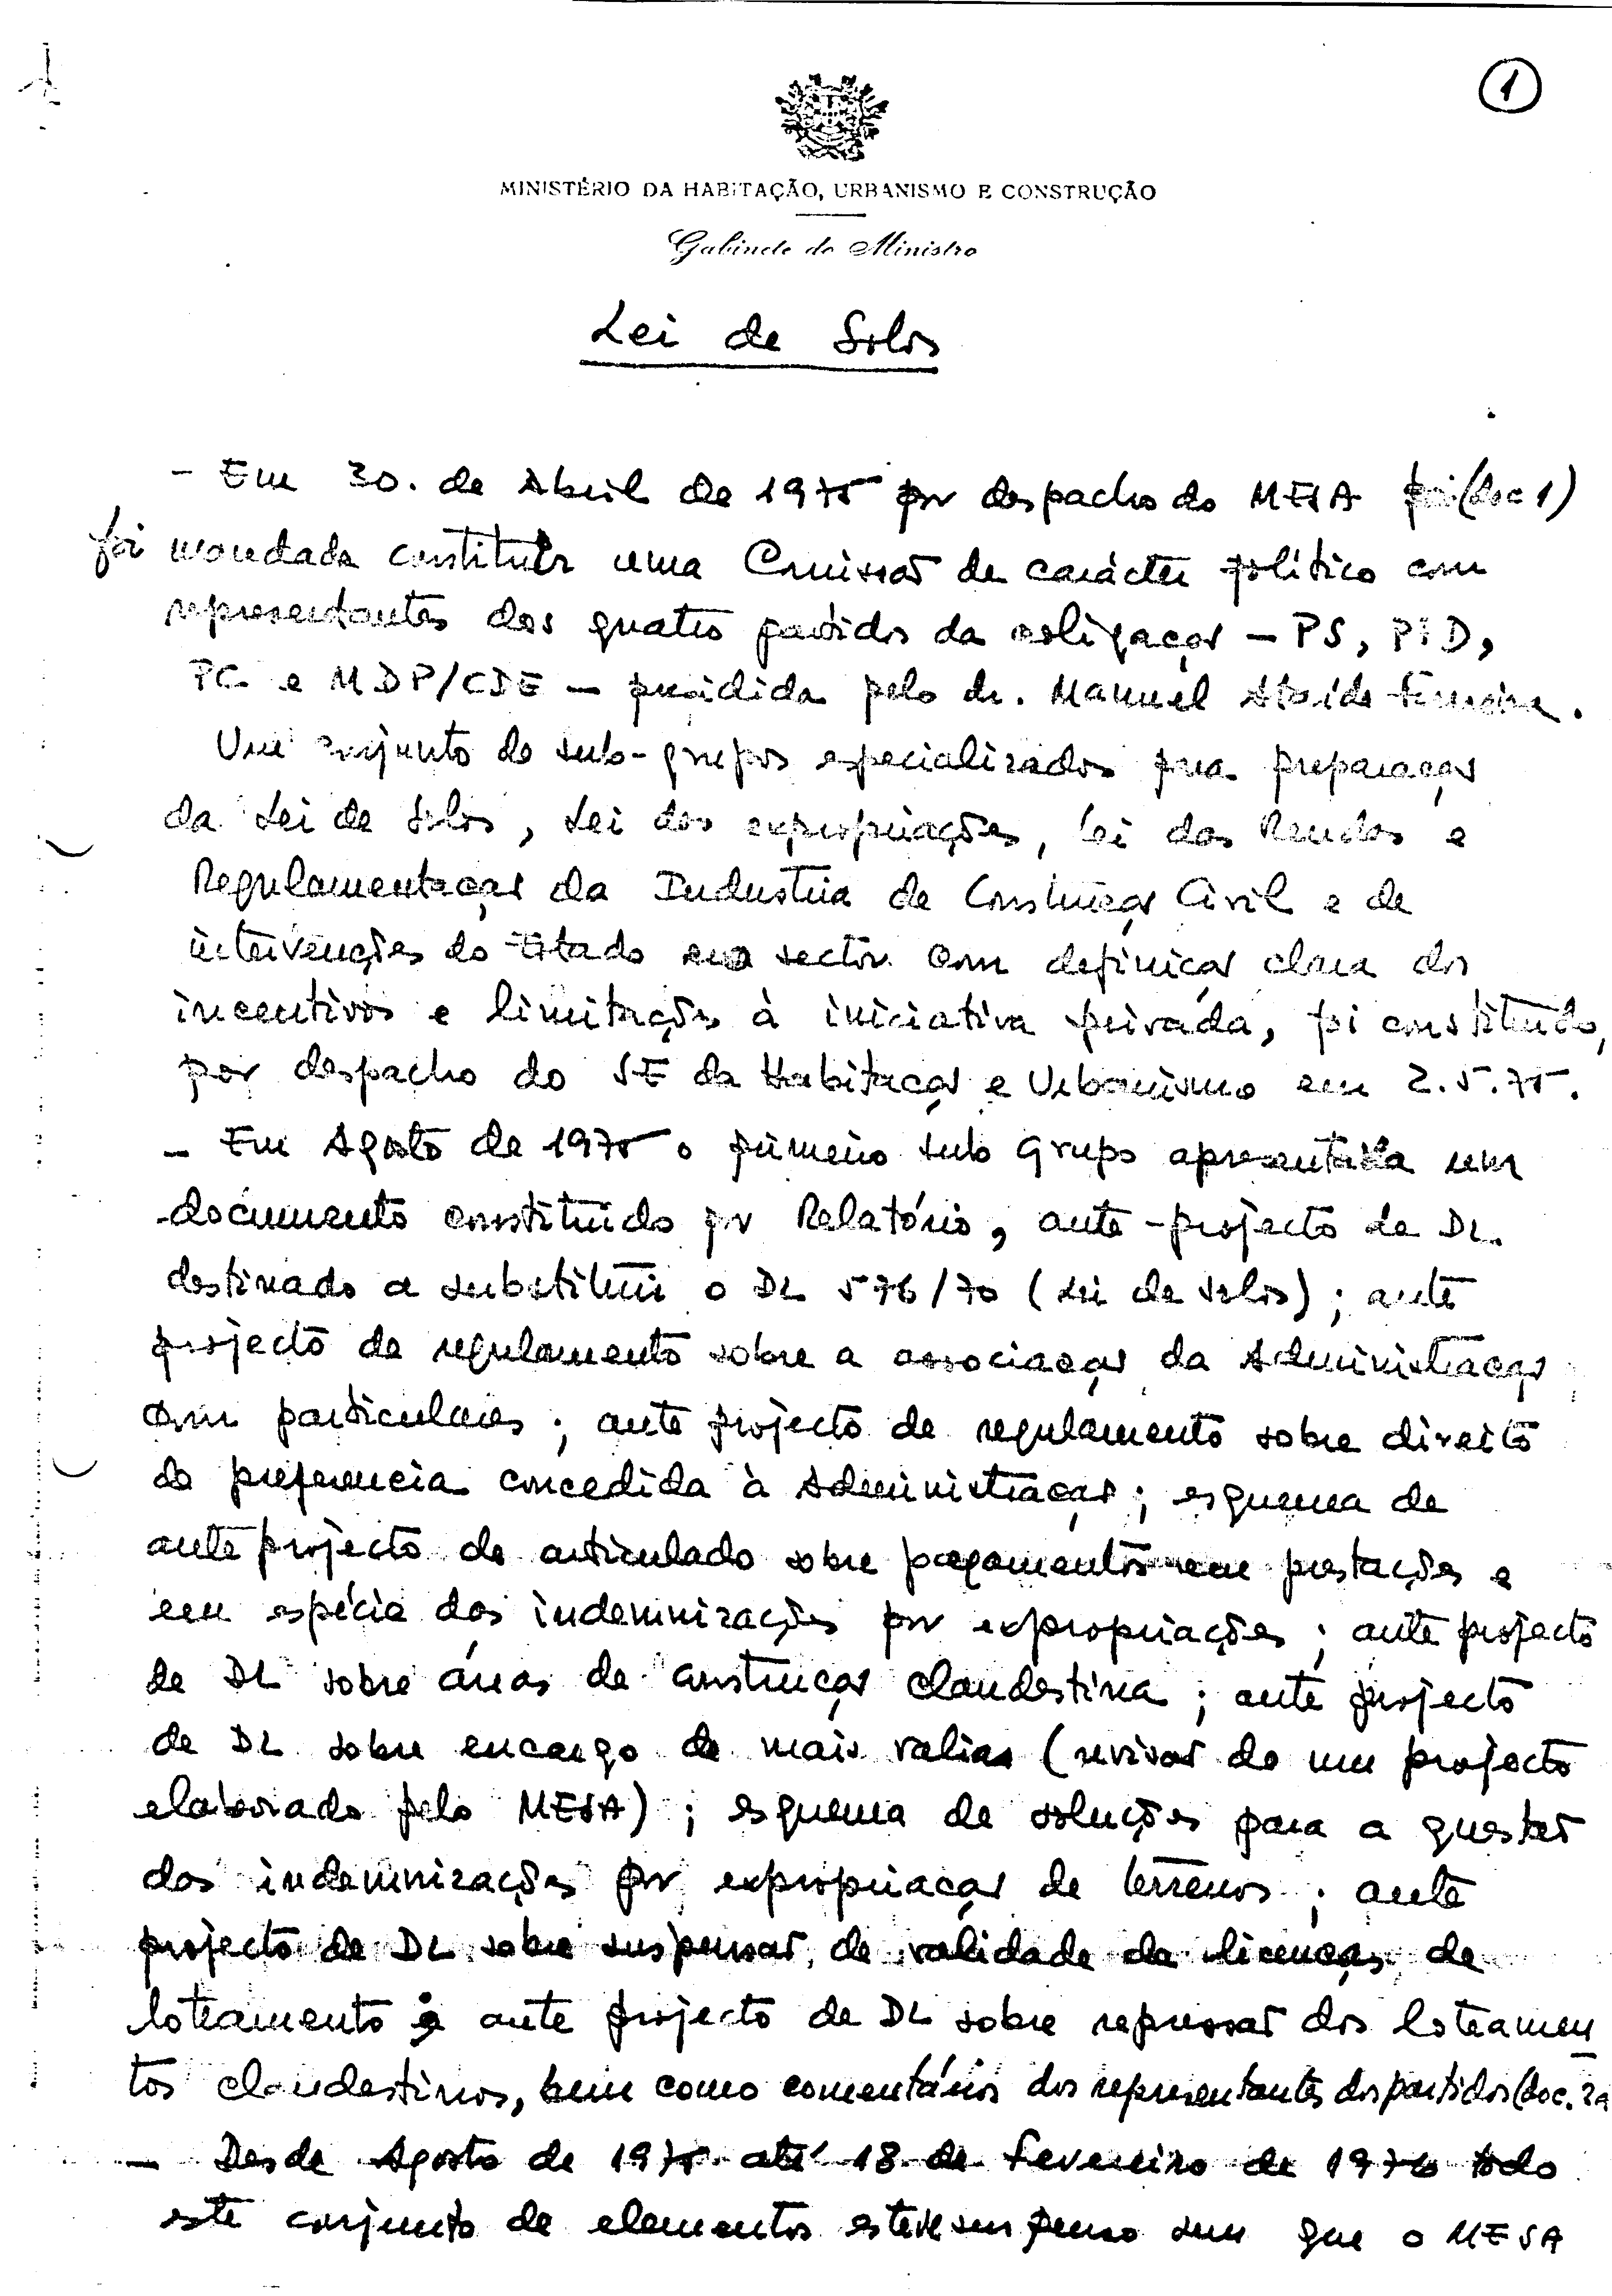 1
MINISTÉRIO DA HABITAÇÃO, URBANISMO E CONSTRUÇÃO
Gabinete do Ministro
Lei de Solos
- Em 30. de Abril de 1975 por despacho do MESA (doc 1)
foi mandada constituir uma Comissão de carácter político com
representantes dos quatro partidos da coligação - PS, PPD,
PC e MDP/CDE - presidida pelo dr. Manuel Ataíde Ferreira.
Um conjunto de sub-grupos especializados para preparação
da Lei de Solos, Lei das expropriações, Lei das Rendas e
Regulamentação da Industria de Construção Civil e de
intervenções do Estado no sector com definição clara dos
incentivos e limitações à iniciativa privada, foi constituido,
por despacho do SE da Habitação e Urbanismo em 2.5.75.
- Em Agosto de 1975 o primeiro sub grupo apresentava um
documento constituido por Relatório, ante-projecto de DL.
destinado a substituir o DL 576/70 (Lei de Solos); ante
projecto de regulamento sobre a associação da Administração
com particulares; ante projecto de regulamento sobre direito
de preferencia concedida à Administração; esquema de
ante projecto de articulado sobre pagamentos em prestações e
em espécie das indemnizações por expropriações; ante projecto
de DL sobre áreas de construção clandestina; ante projecto
de DL sobre encargo de mais valias (revisão de um projecto
elaborado pelo MESA); esquema de soluções para a questão
das indemnizações por expropriação de terrenos; ante
projecto de DL sobre suspensão de validade de licenças de
loteamento e ante projecto de DL sobre repressão dos loteamen
tos clandestinos, bem como comentários dos representantes dos partidos (doc. 2a
- Desde Agosto de 1975 até 18 de Fevereiro de 1976 todo
este conjunto de elementos esteve suspenso sem que o MESA